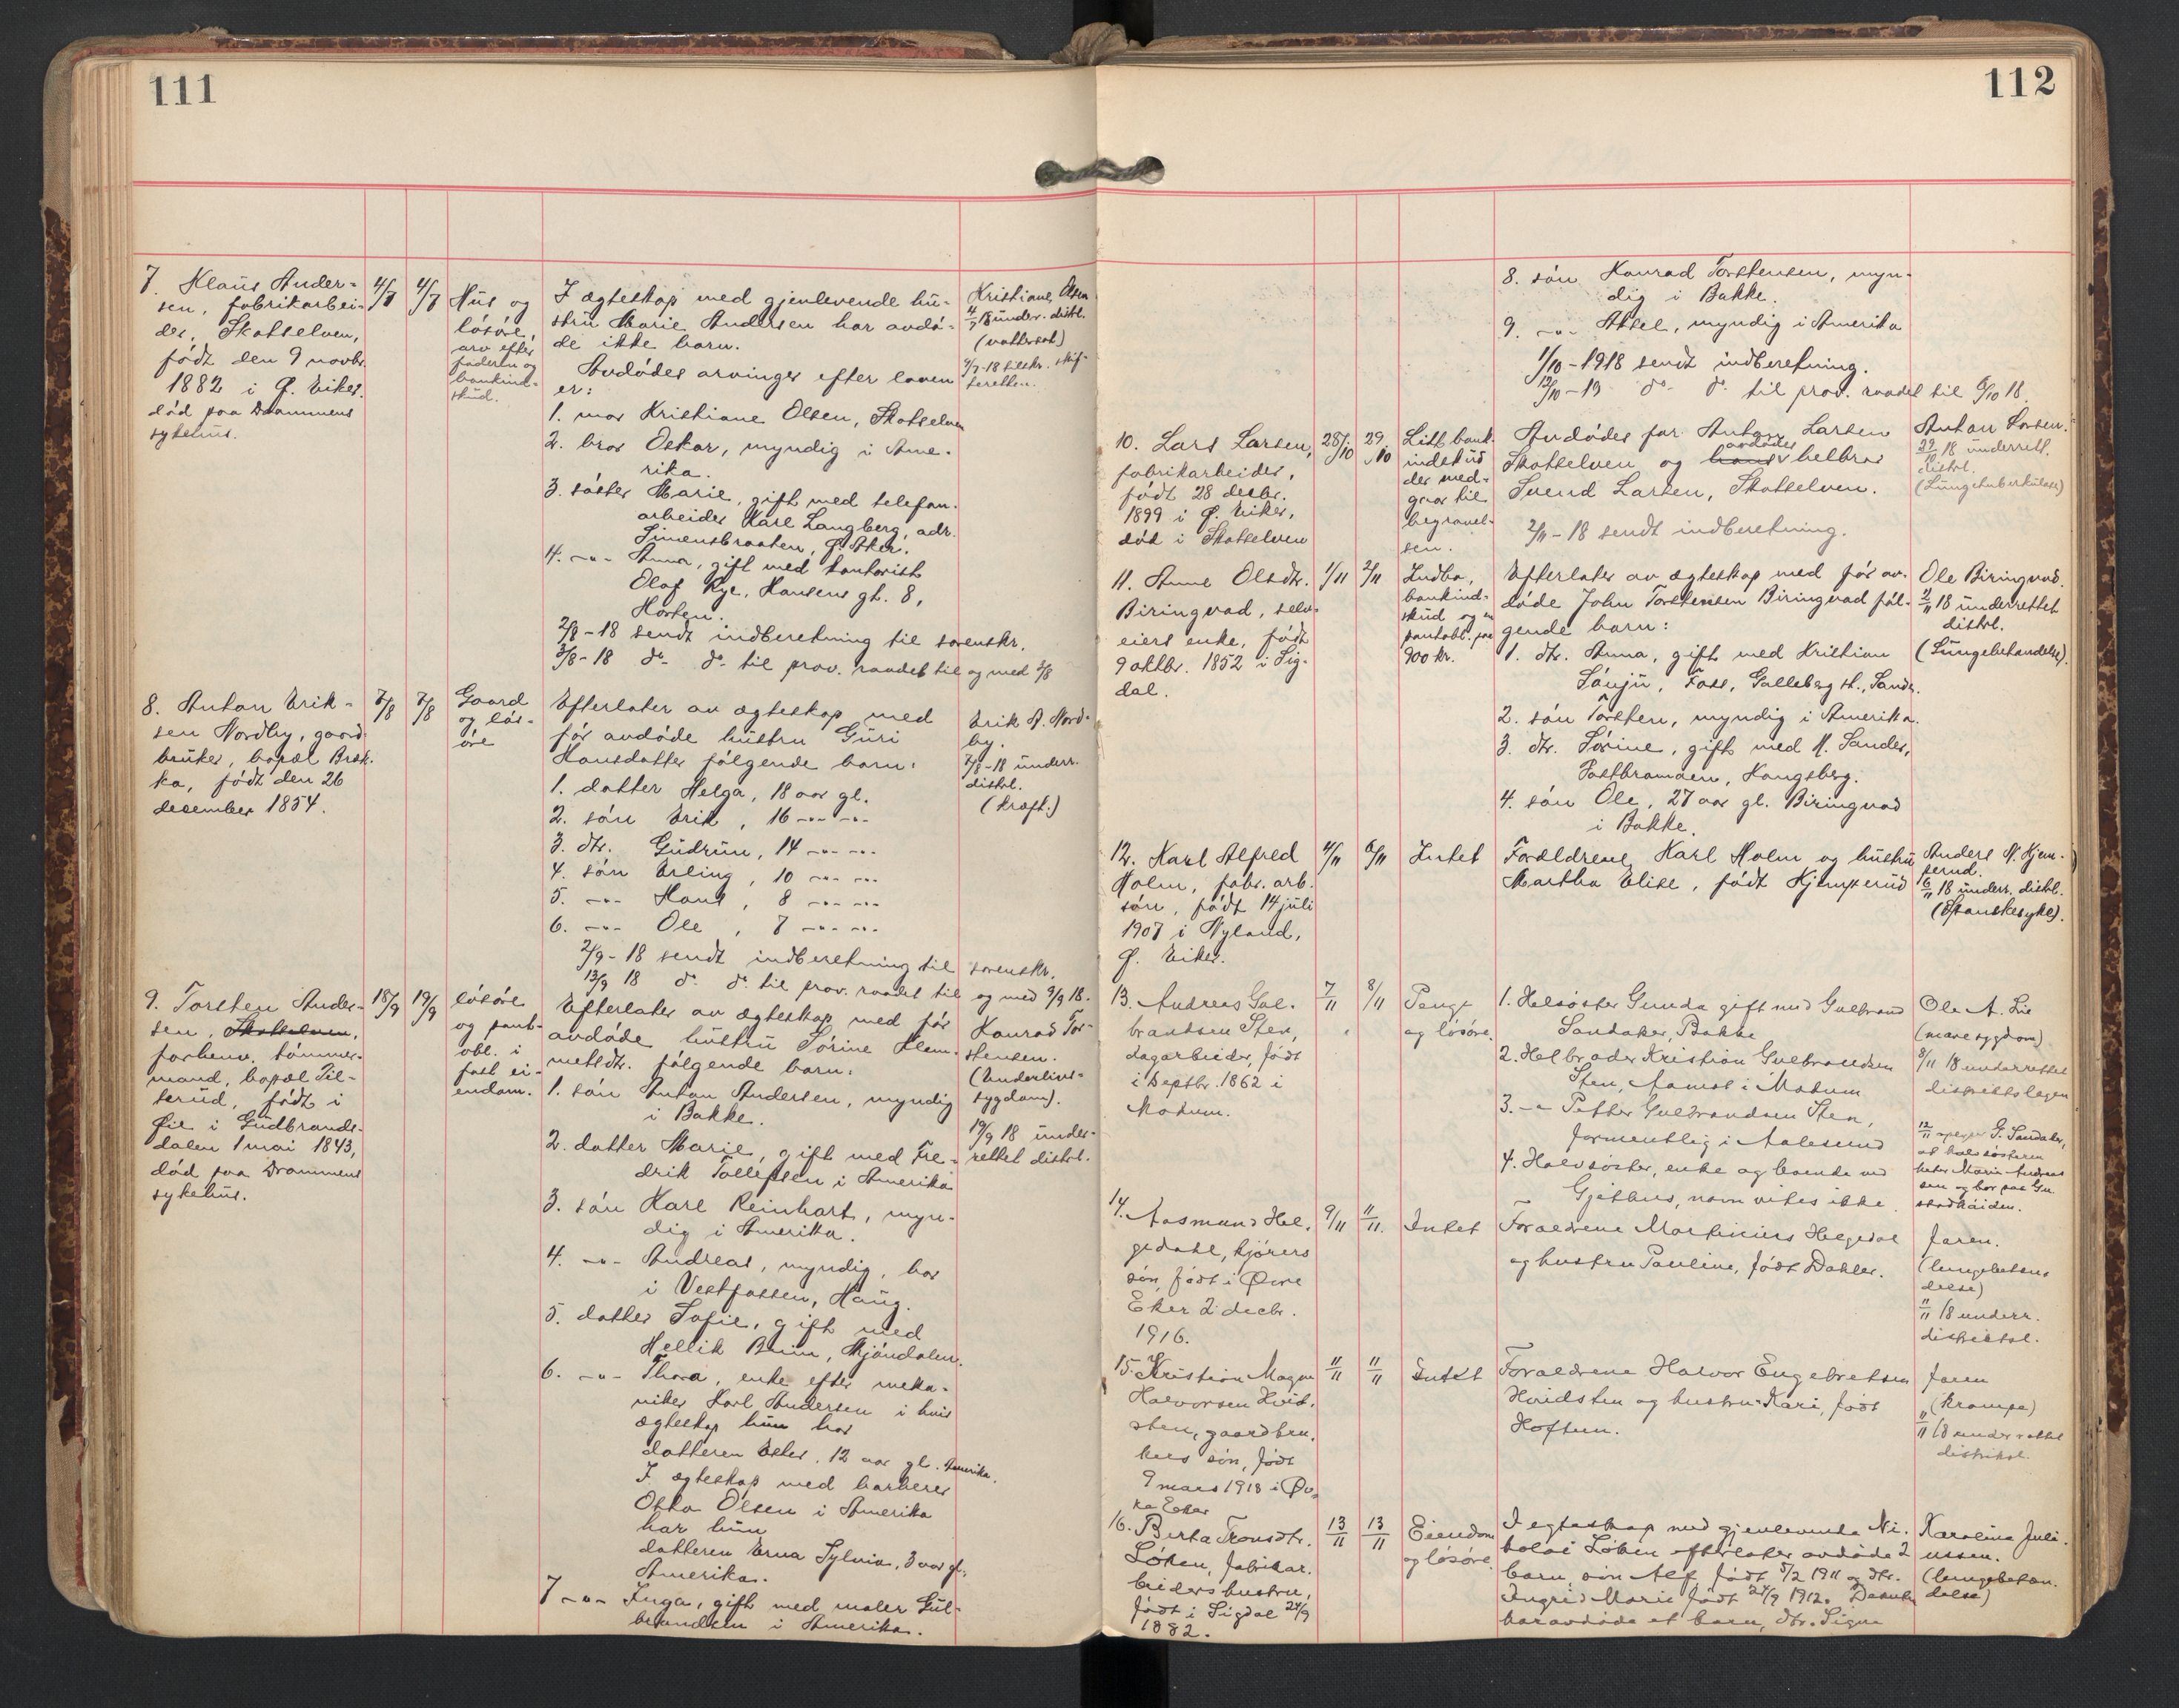 111
7. Klaus Ander-
sen, fabrikarbei-
der, Skotselven,
født den 9 novbr.
1882 i Ø. Eiker.
død paa Drammens
sykehus.
4/7
4/7
Hus og
løsøre,
arv efter
faderen og
bankind-
skud.
I ægteskap med gjenlevende hu-
stru Marie Andersen har avdø-
de ikke barn.
Avdødes arvinger efter loven
er:
1. mor Kristiane Olsen, Skotselven
2. bror Oskar, myndig i Ame-
rika.
3. søster Marie, gift med telefon-
arbeider Karl Langberg, adr.
Simensbraaten, Ø. Aker.
4. -"- Anna, gift med kontorist
Olaf Rye, Hansens gt. 8,
Horten.
2/8-18 sendt indberetning til sorenskr.
3/8-18 do- do- til prov. raadet til og med 3/8
Kristiane Olsen
4/7 18 under. distl.
(vattersot)
4/7-18 tilskr. skif-
teretten.
8. Anton Erik-
sen Nordby, gaard-
bruker, bopæl Bræk-
ka, født den 26
desember 1854.
7/8
7/8
Gaard
og løs-
øre
Efterlater av ægteskap med
før avdøde hustru Guri
Hansdatter følgende barn:
1. datter Helga, 18 aar gl.
2. søn Erik, 16 -"- -"-
3. dtr. Gudrun, 14 -"- -"-
4. søn Erling, 10 -"- -"-
5. -"- Hans, 8 -"- -"-
6. -"- Ole, 7 -"- -"-
2/9-18 sendt indberetning til sorenskr.
13/9 18 do- do- til prov. raadet til og med 9/9 18.
Erik A. Nord-
by.
7/8-18 underr.
distl.
(kræft.)
9. Torsten Ander-
sen, Skotselven,
forhenv. tømmer-
mand, bopæl Til-
serud, født i
Øie i Gudbrands-
dalen 1 mai 1843,
død paa Drammens
sykehus.
18/9
19/9
løsøre
og pant-
obl. i
fast ei-
endom.
Efterlater av ægteskap med før
avdøde hustru Sørine Klem-
metsdtr. følgende barn:
1. søn Anton Andersen, myndig
i Bakke.
2. datter Marie, gift med Fre-
drik Tollefsen i Amerika
3. søn Karl Reinhart, myn-
dig i Amerika.
4. -"- Andreas, myndig, bor
i Vestfossen, Haug.
5. datter Sofie, gift med
Hellik Bruun, Mjøndalen.
6. -"- Thora, enke efter meka-
niker Karl Andersen i hvis
ægteskap hun har
datteren Ester, 12 aar gl. Amerika.
I ægteskap med barberer
Otto Olsen i Amerika
har hun
datteren Erna Sylvia, 3 aar gl.
Amerika.
7 -"- Inga, gift med maler Gul-
brandsen i Amerika.
Konrad Tor-
stensen.
(Underlivs-
sygdom).
19/9 18 under-
rettet distl.
112
8. søn Konrad Torstensen, myn-
dig i Bakke.
9. -"- Aksel, myndig i Amerika
1/10-1918 sendt indberetning.
12/10-18 do- do- til prov. raadet til 6/10 18.
10. Lars Larsen,
fabrikarbeider,
født 28 decbr.
1899 i Ø. Eiker,
død i Skotselven
28/10
29/10
Litt bank-
indskud
der med-
gaar til
begravel-
sen.
Avdødes far Anton Larsen
Skotselven og hans avdødes helbror
Svend Larsen, Skotselven.
2/11-18 sendt indberetning.
Anton Larsen.
29/10 18 underrett.
distl.
(Lungetuberkulose)
11. Anne Olsdtr.
Biringvad, selv-
eiers enke, født
9 oktbr. 1852 i Sig-
dal.
1/11
2/11
Indbo,
bankind-
skud og en
pantobl. paa
900 kr.
Efterlater av ægteskap med før av-
døde John Torstensen Biringvad føl-
gende barn:
1. dtr. Anna, gift med Kristian
Sønju, Foss, Galleberg st., Sande.
2. søn Torsten, myndig i Amerika.
3. dtr. Sørine, gift med M. Sander,
Postbramoen, Kongsberg.
4. søn Ole, 27 aar gl. Biringvad
i Bakke.
Ole Biringvad.
2/11 18 underrettet
distl.
(Lungebetændelse).
12. Karl Alfred
Holm, fabr. arb.
søn, født 14 juli
1907 i Nyland,
Ø. Eiker.
4/11
6/11
Intet
Forældrene, Karl Holm og hustru
Martha Elise, født Hjemperud
Anders N. Hjem-
perud.
6/11 18 underr. distl.
(Spanskesyke).
13. Andreas Gul-
brandsen Sten,
dagarbeider, født
i Septbr. 1862 i
Modum.
7/11
8/11
Penge
og løsøre.
1. Helsøster Gunda gift med Gulbrand
Sandaker, Bakke
2. Helbroder Kristian Gulbrandsen
Sten, Aamot i Modum
3. -"- Petter Gulbrandsen Sten,
formentlig i Aalesund
4. Halvsøster, enke og boende ved
Gjethus, navn vites ikke.
Ole A. Lie
(mavesygdom)
8/11 18 underrettet
distriktslegen
12/11 opgir G. Sandaker,
at halvsøsteren
heter Maria Andreas
sen og bor paa Gu-
stadhaiden.
14. Aasmund Hel-
gedahl, kjørers
søn, født i Øvre
Eker 2 decbr.
1916.
9/11
11/11.
Intet
Foraldrene Martinius Helgedal
og hustru Pauline, født Dahler.
Faren.
(lungebetæn-
delse)
11/11 18 underr.
distriktsl.
15. Kristian Magnus
Halvorsen Hvid-
sten, gaardbru-
kers søn, født
9 mars 1918 i Øv-
re Eker
11/11
11/11
Intet
Foraldrene Halvor Engebretsen
Hvidsten og hustru Kari, født
Hoftun.
Faren
(Krampe)
11/11 18 underrettet
distriktsl.
16. Berta Tronsdtr.
Løken, fabrikar-
beiders hustru,
født i Sigdal 24/9
1882.
13/11
13/11
Eiendom
og løsøre
I egteskap med gjenlevende Ni-
kolai Løken efterlater avdøde 2
barn, søn Alf, født 5/2 1911 og dtr.
Ingrid Marie født 24/9 1912. Desuten
har avdøde et barn, dtr. Signe
Karoline Juli-
ussen.
(lungebetæn-
delse)